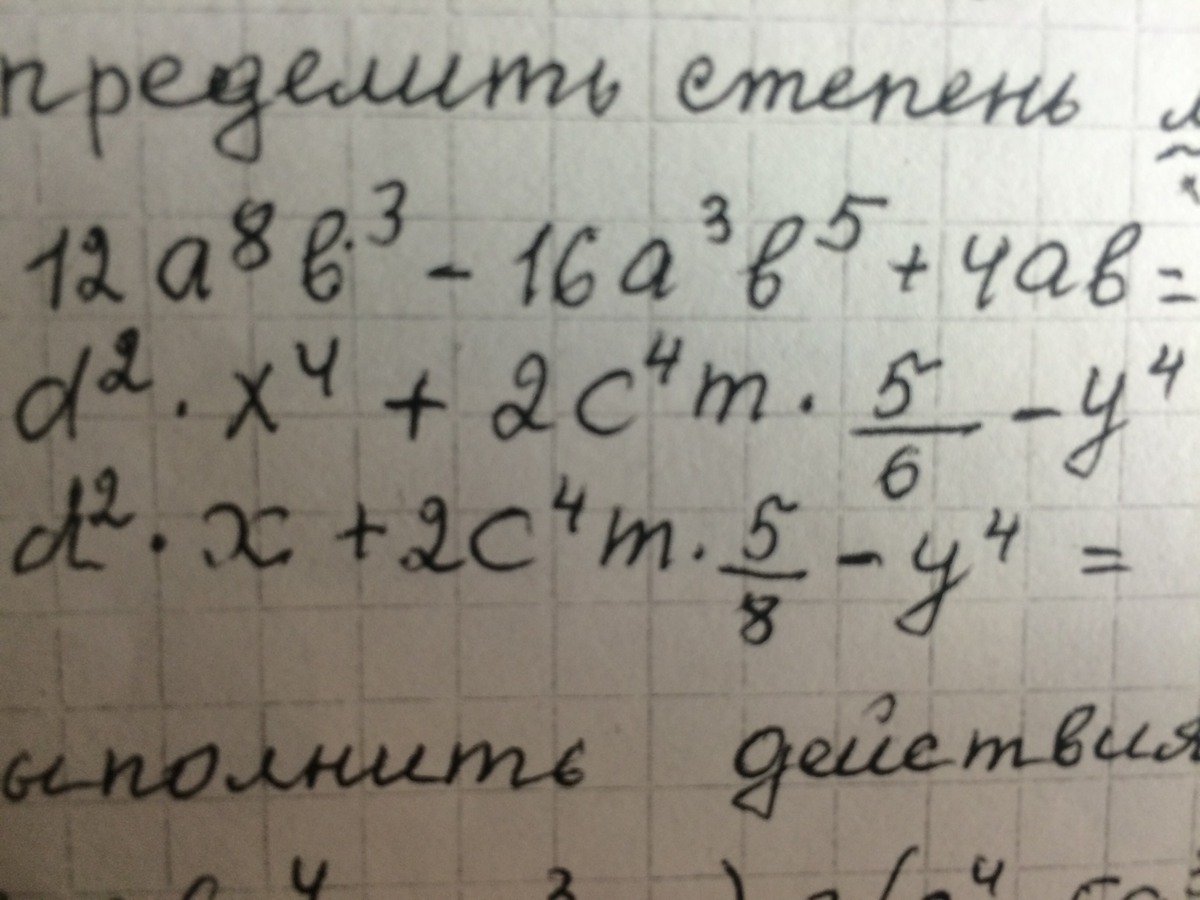 пределить степень
12a⁸в³ - 16a³в⁵ + 4aв =
d² · x⁴ + 2c⁴m · 5/6 - y⁴
d² · x + 2c⁴m · 5/8 - y⁴ =
ыполнить действия